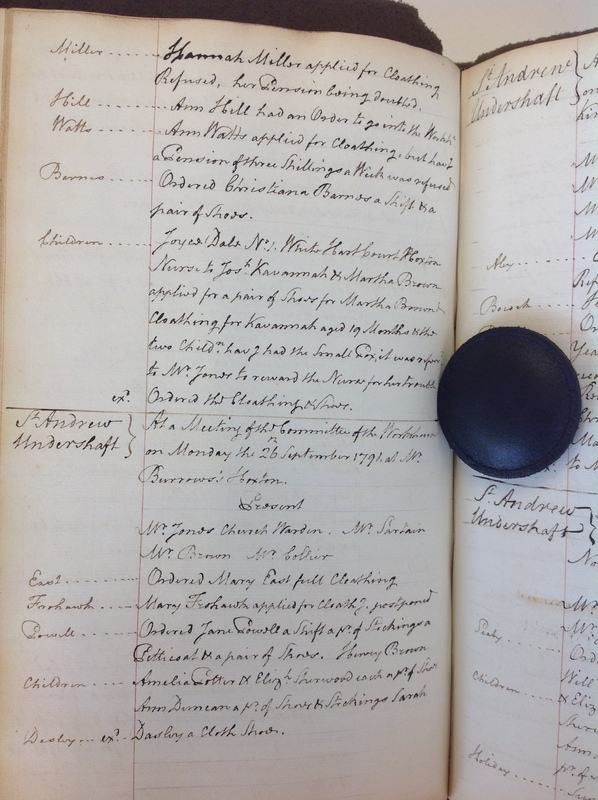 Miller ...... Hannah Miller applied for Cloathing
Refused, her Pension being doubled.
Hill ...... Ann Hill had an Order to go into the Workh.
Watts ...... Ann Watts applied for Cloathing, but hav.g
a Pension of three Shillings a Week was refused
Barnes ...... Ordered Christiana Barnes a Shift & a
pair of Shoes.
Children ...... Joyce Dale No. 1. White Hart Court Hoxton
Nurse to Jos.h Kavannah & Martha Brown
applied for a pair of Shoes for Martha Brown &
Cloathing for Kavannah aged 19 Months & the
two Child.n hav.g had the Small Pox, it was refer'd
to Mr. Jones to reward the Nurse for her trouble
ex.d Ordered the Cloathing & Shoes.
St. Andrew Undershaft } At a Meeting of the Committee of the Workhouse
on Monday the 26 September 1791, at Mr.
Burrows's Hoxton.
Present
Mr. Jones Church Warden. Mr. Sartain
Mr. Brown Mr. Collier
East ...... Ordered Mary East full Cloathing
Frohawk ...... Mary Frohawk applied for Cloath.g postponed
Powell ...... Ordered Jane Powell a Shift a p.r of Stockings a
Petticoat & a pair of Shoes. Henry Brown
Children ...... Amelia Potter & Eliz.th Sherwood each a p.r of Shoes
Ann Duncan a p.r of Shoes & Stockings Sarah
ex.d Dasley a Cloth Shoes.
St. Andrew
Undershaft }
Aley
Bocock
St. Andrew
Undershaft
Children
Holiday